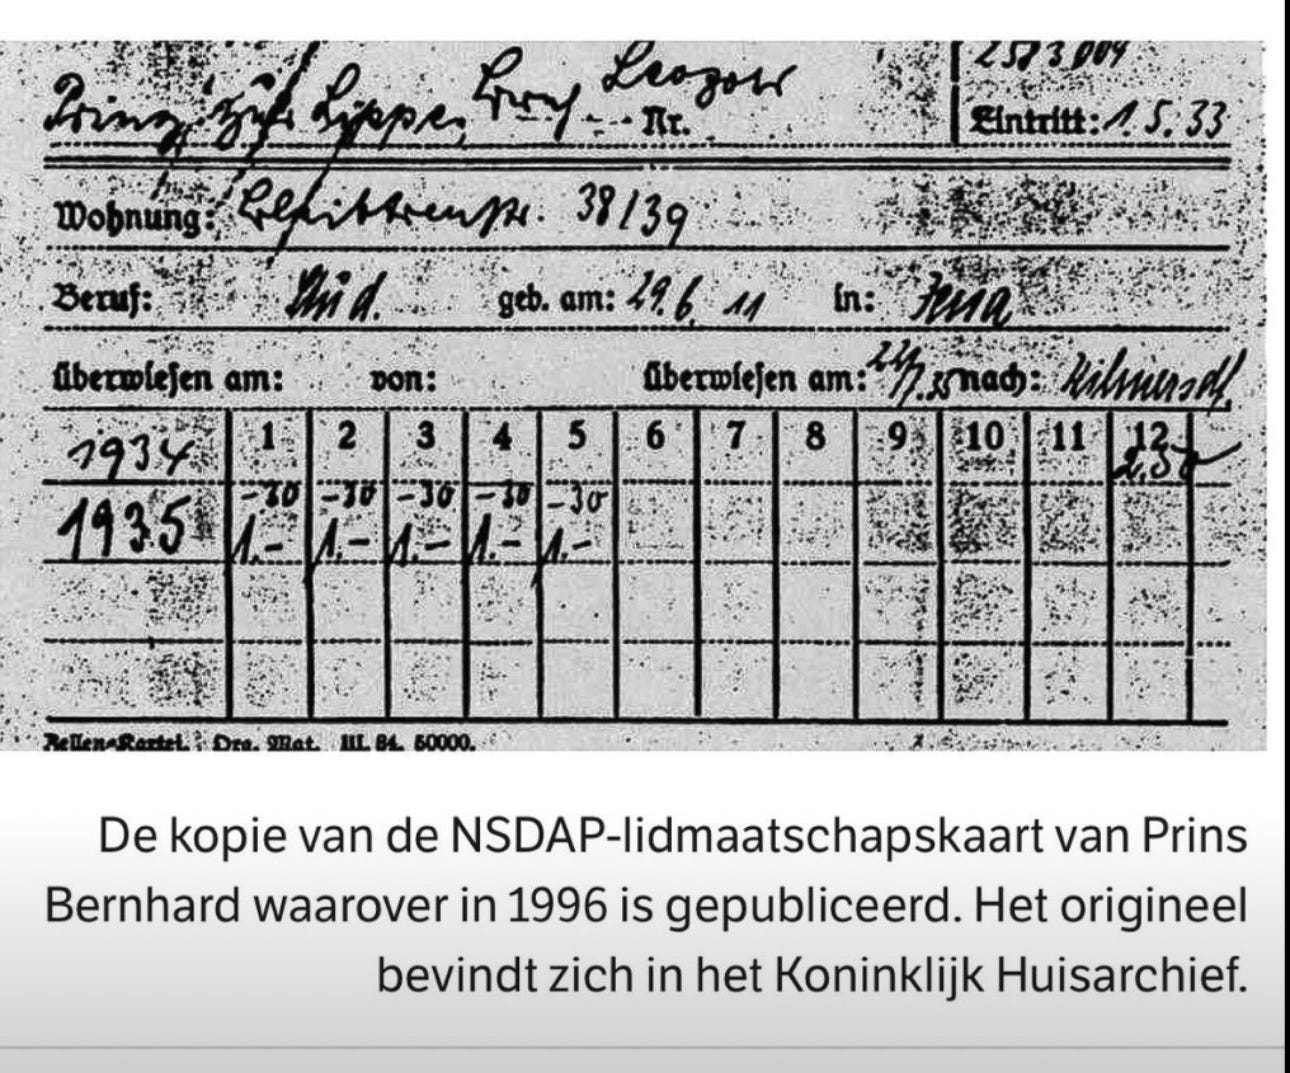 Prinz zur Lippe, Leopold Nr.
2583009
Eintritt: 1. 5. 33
Wohnung: 38/39
Beruf: Stud. geb. am: 29. 6. 11 in: Jena
überwiesen am: von: überwiesen am: nach:
1934 1 2 3 4 5 6 7 8 9 10 11 12
-30 -30 -30 -30 -30
1935 1.- 1.- 1.- 1.- 1.-
De kopie van de NSDAP-lidmaatschapskaart van Prins
Bernhard waarover in 1996 is gepubliceerd. Het origineel
bevindt zich in het Koninklijk Huisarchief.